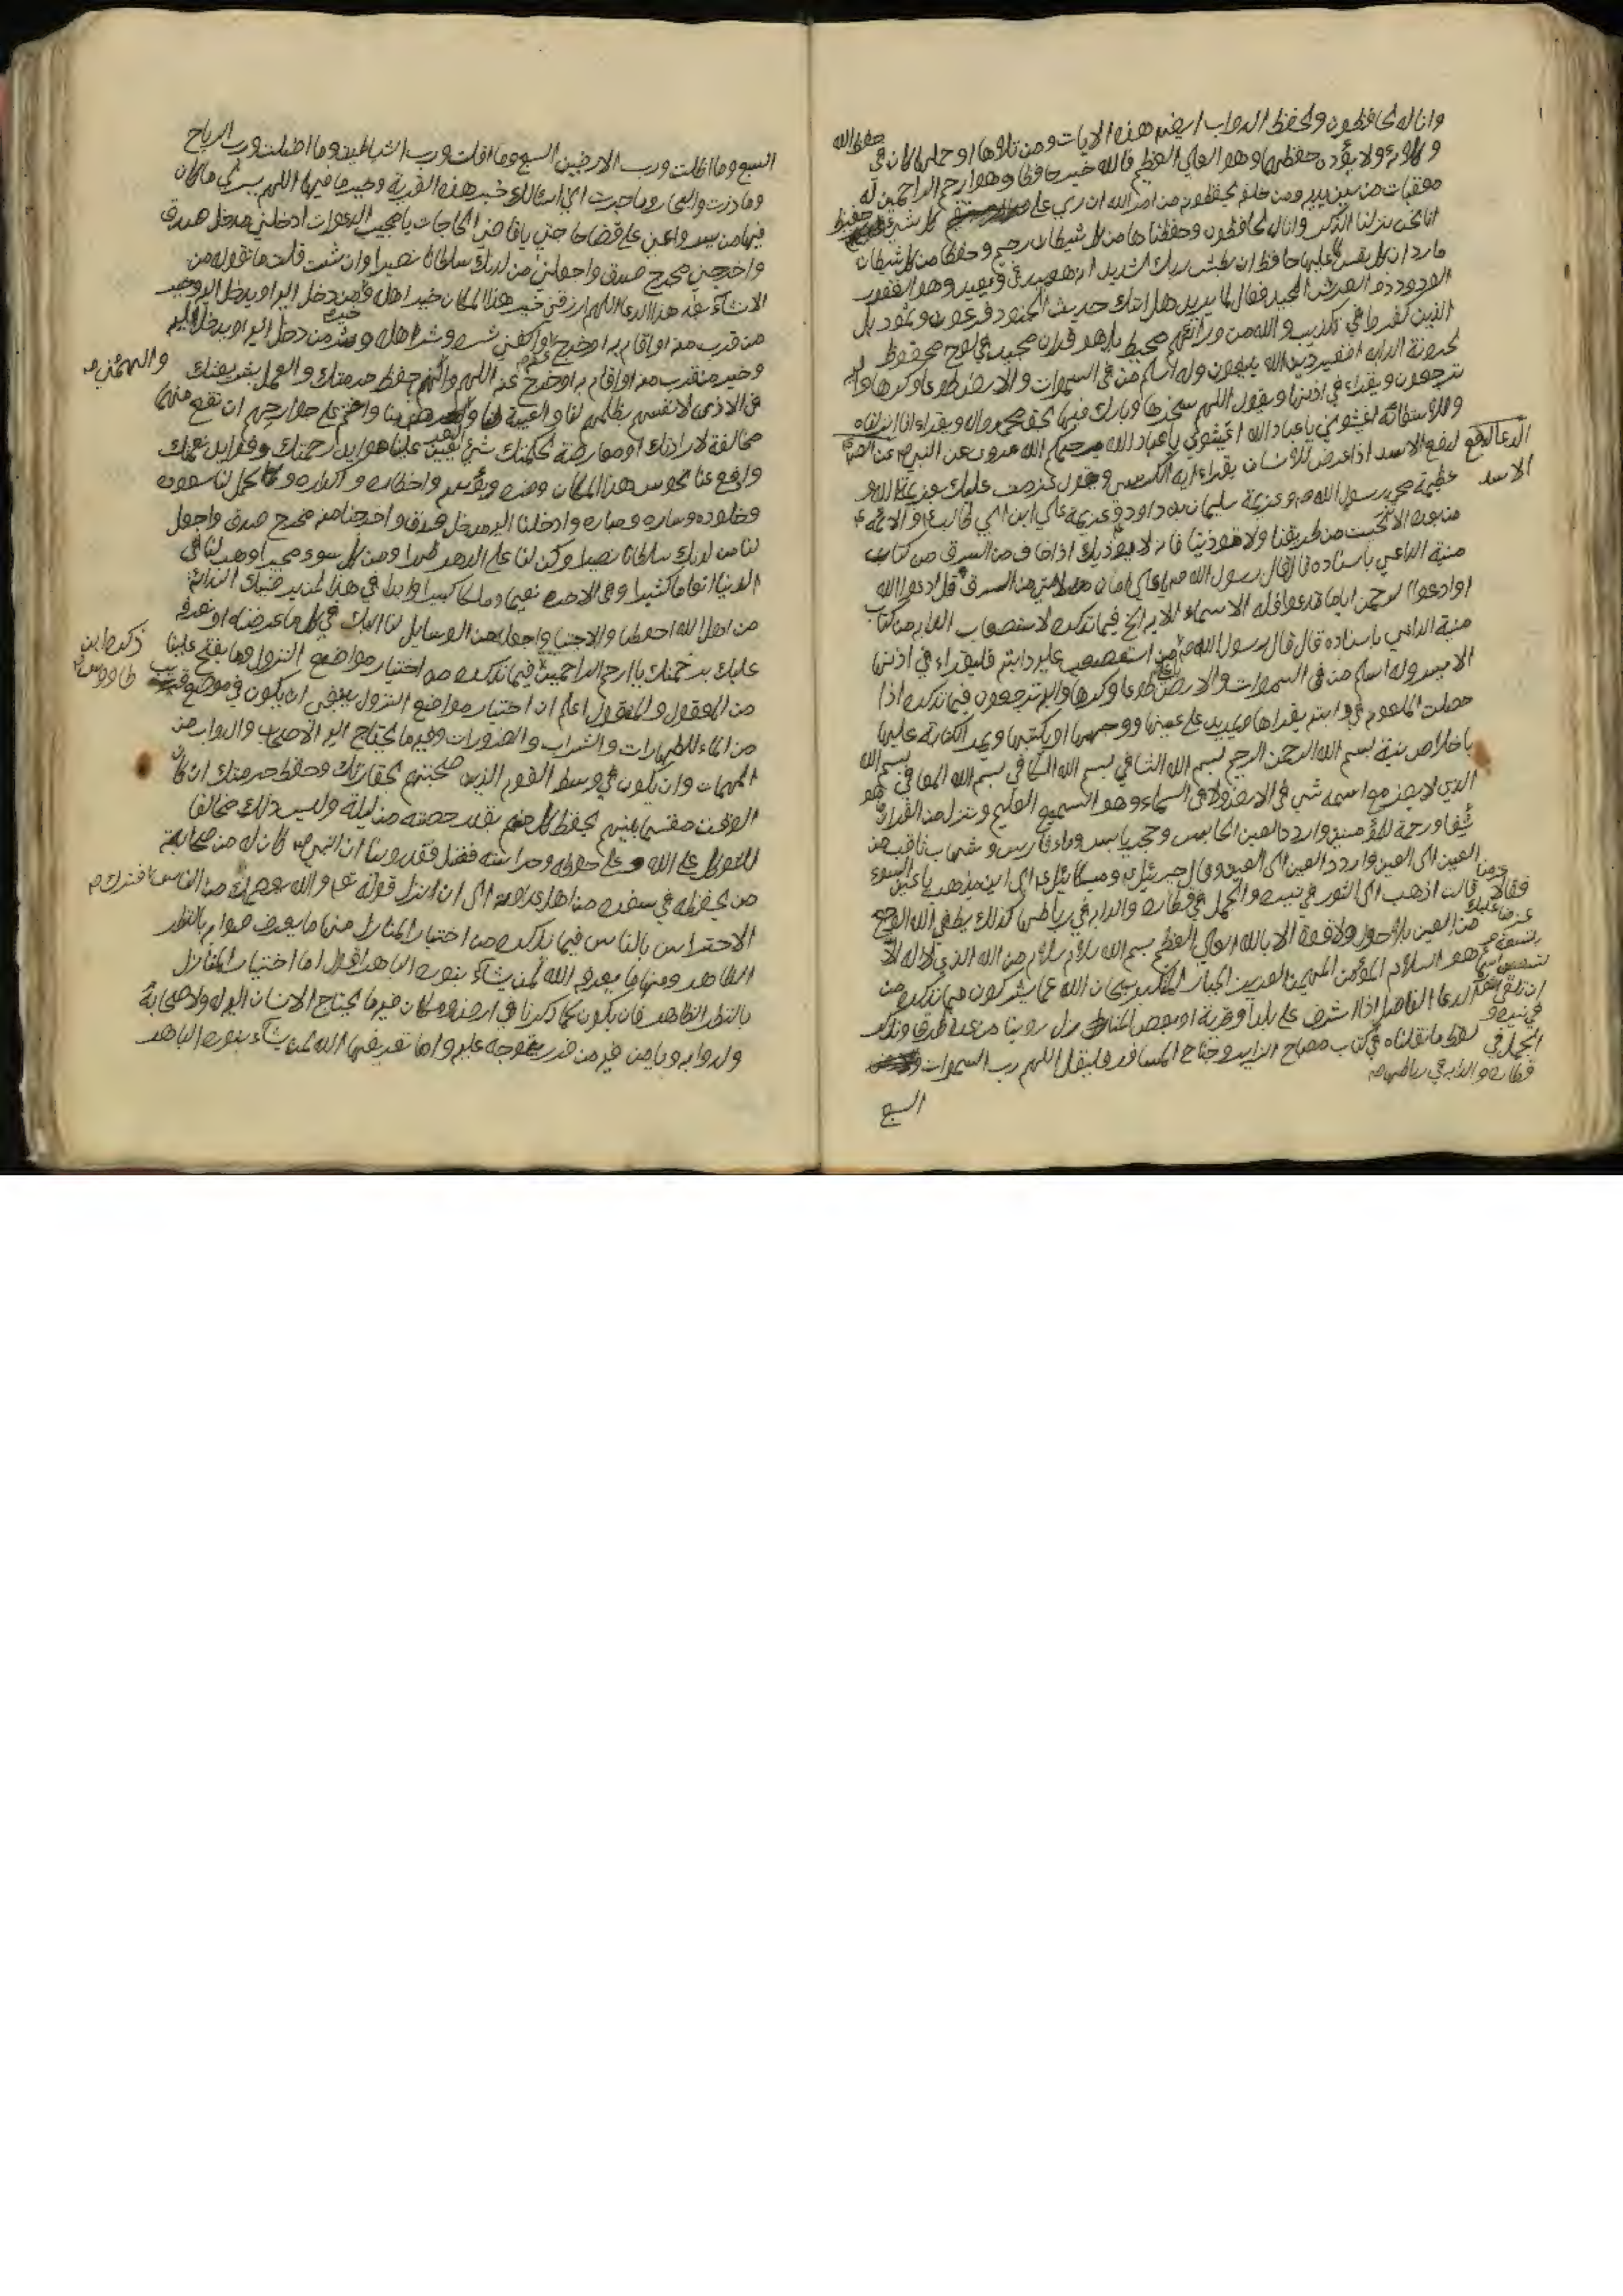 وانا له لحافظون ولحفظ الدواب ايضا هذه الايات ومن تلاها او حملها كان في حفظ الله
وكلاءه ولا يؤده حفظهما وهو العلي العظيم فالله خير حافظا وهو ارحم الراحمين له
معقبات من بين يديه ومن خلفه يحفظونه من امر الله ان ربي على كل شيء حفيظ
انا نحن نزلنا الذكر وانا له لحافظون وحفظناها من كل شيطان رجيم وحفظا من كل شيطان
مارد ان كل نفس لما عليها حافظ ان بطش ربك لشديد انه هو يبدئ ويعيد وهو الغفور
الودود ذو العرش المجيد فعال لما يريد هل اتيك حديث الجنود فرعون وثمود بل
الذين كفروا في تكذيب والله من ورائهم محيط بل هو قران مجيد في لوح محفوظ
لحرونة الدابه افغير دين الله يبغون وله اسلم من في السموات والارض طوعا وكرها واليه
ترجعون ويقراء في اذنها ويقول اللهم سخرها وبارك فيها بحق محمد واله ويقراء انا انزلناه
وللاستغاثة اغيثوني يا عباد الله اغيثوني يا عباد الله يرحمكم الله مروي عن النبي
الدعا لدفع الاسد
لدفع الاسد اذا عرض للانسان يقراء اية الكرسي ويقول عزمت عليك بعزيمة الله و
عزيمة محمد رسول الله ص وعزيمة سليمان بن داود وعزيمة علي ابن ابي طالب والائمة
من بعده الا تنحيت من طريقنا ولا تؤذينا فانه لا يؤذيك اذا خاف من السرق من كتاب
منية الداعي باسناده قال قال رسول الله ص يا علي امان لامتي من السرق قل ادعوا الله
او ادعوا الرحمن ايا ما تدعوا فله الاسماء الاية الخ فيما نذكره لاستصعاب الدابه من كتاب
منية الداعي باسناده قال قال رسول الله ص يا علي من استصعب عليه دابته فليقراء في اذنها
الايمن وله اسلم من في السموات والارض طوعا وكرها واليه ترجعون فيما نذكره اذا
حصلت الملعونه في دابته يقراها ويمر يده على عينها ووجهها او يكتبها ويمر الكتابة عليها
باخلاص نية بسم الله الرحمن الرحيم بسم الله الشافي بسم الله الكافي بسم الله المعافي بسم الله
الذي لا يضر مع اسمه شي في الارض ولا في السماء وهو السميع العليم وننزل من القران ما هو
شفا ورحمة للمؤمنين وارد العين الحابس وحجر يابس وماء فارس وشهاب ثاقب من
العين الى العين وارد العين الى العين وقال جبرئيل وميكائيل الى اين تذهب يا عين السوء
قالت اذهب الى الثور في نيره والجمل في قطاره والدابه في رباطها كذلك يطفي الله الوجع
من العين بلا حول ولا قوة الا بالله العلي العظيم بسم الله سلام سلام من الله الذي لا اله الا
هو السلام المؤمن المهيمن العزيز الجبار المتكبر سبحان الله عما يشركون فيما نذكره من
الدعا الفاضل اذا اشرف على بلد او قرية او بعض المنازل روينا من عدة طرق ونذكر
لفظ ما نقلناه في كتاب مصباح الزاير وجناح المسافر فليقل اللهم رب السموات
السبع
السبع وما اظلت ورب الارضين السبع وما اقلت ورب الشياطين وما اضلت ورب الرياح
وما ذرت والبحار وما جرت اني اسالك خير هذه القرية وخير ما فيها اللهم يسر لي ما كان
فيها من يسر واعني على قضا حاجتي يا قاضي الحاجات يا مجيب الدعوات ادخلني مدخل صدق
واخرجني مخرج صدق واجعلني من لدنك سلطانا نصيرا وان شئت قلت ما نقوله من
الانشاء نحو هذا الدعا اللهم ارزقني خير هذا المكان وخير اهله وخير من دخل اليه او يدخل اليه وخير
من قرب منه او اقام به او خرج عنه واكفني شره وشر اهله وشر من دخل اليه او يدخل اليه
وخير من قرب منه او اقام به او خرج عنه اللهم والهمهم حفظ حرمتك والعمل بشريعتك
والهمني
في الاذى لانفسهم بظلمهم لنا والغيبة لنا واختم على جوارحهم ان تقع منها
مخالفة لارادتك او معارضة لحكمتك شيء تعين علينا هوايد رحمتك وفوايد نعمتك
وارفع عنا نحوس هذا المكان وضره وبؤسه واخطاره واكداره وكمل لنا سعوده
وخلوده ومساره ومباره وادخلنا اليه مدخل صدق واخرجنا منه مخرج صدق واجعل
لنا من لدنك سلطانا نصيرا وكن لنا على الدهر ظهيرا ومن كل سوء مجيرا وهب لنا في
الدنيا انعاما كثيرا وفي الاخرة نعيما وملكا كبيرا
من اهل لك وجعله من الوسايل لنا اليك في كل ما عرضناه او نعرضه
عليك برحمتك يا ارحم الراحمين فيما نذكره من اختيار مواضع النزول وما يفتح علينا
ذكره ابن طاووس
من المعقول والمنقول اعلم ان اختيار مواضع النزول ينبغي ان يكون في موضع قريب
من الماء للطهارات والشراب والضرورات وفيه ما يحتاج اليه الاصحاب والدواب من
المهمات وان يكون في وسط القوم الذين صحبتهم لخفارتك وحفظ حرمتك ان كان
الوقت مقتسما بينهم يحفظ كل منهم بقدر حصته من ليلة وليس ذلك مخالفا
للتوكل على الله وعلى حفظه وحراسته فضل فقد روينا ان النبي ص كان له من صحابته
من يحفظه في سفره من اهل عداوته الى ان انزل قوله تعالى والله يعصمك من الناس فترك
الاحتراس بالناس فيما نذكره من اختيار المنازل منها ما يعرف صوابه بالنظر
الظاهر ومنها ما يعرفه الله لمن يشاء بنوره الباهر اقول اما اختيار المنازل
بالنظر الظاهر فان يكون كما ذكرنا في ارض ومكان فيه ما يحتاج الانسان اليه له ولاصحابه
ولدوابه ويامن فيه من ضرر يتوجه عليه واما تعريفها الله لمن يشاء بنوره الباهر